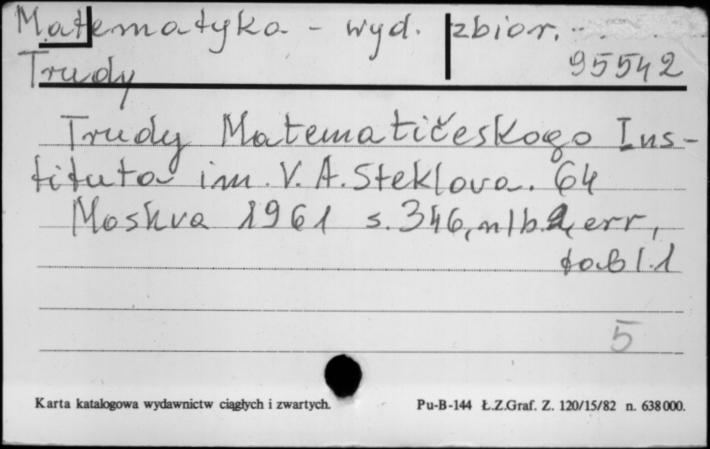 Matematyka - wyd. zbior.
Trudy 95542
Trudy Matematičeskogo Ins-
tituta im. V. A. Steklova. 64
Moskva 1961 s. 346, nlb. 2, err,
tabl. 1
5
Karta katalogowa wydawnictw ciągłych i zwartych. Pu-B-144 Ł.Z.Graf. Z. 120/15/82 n. 638000.